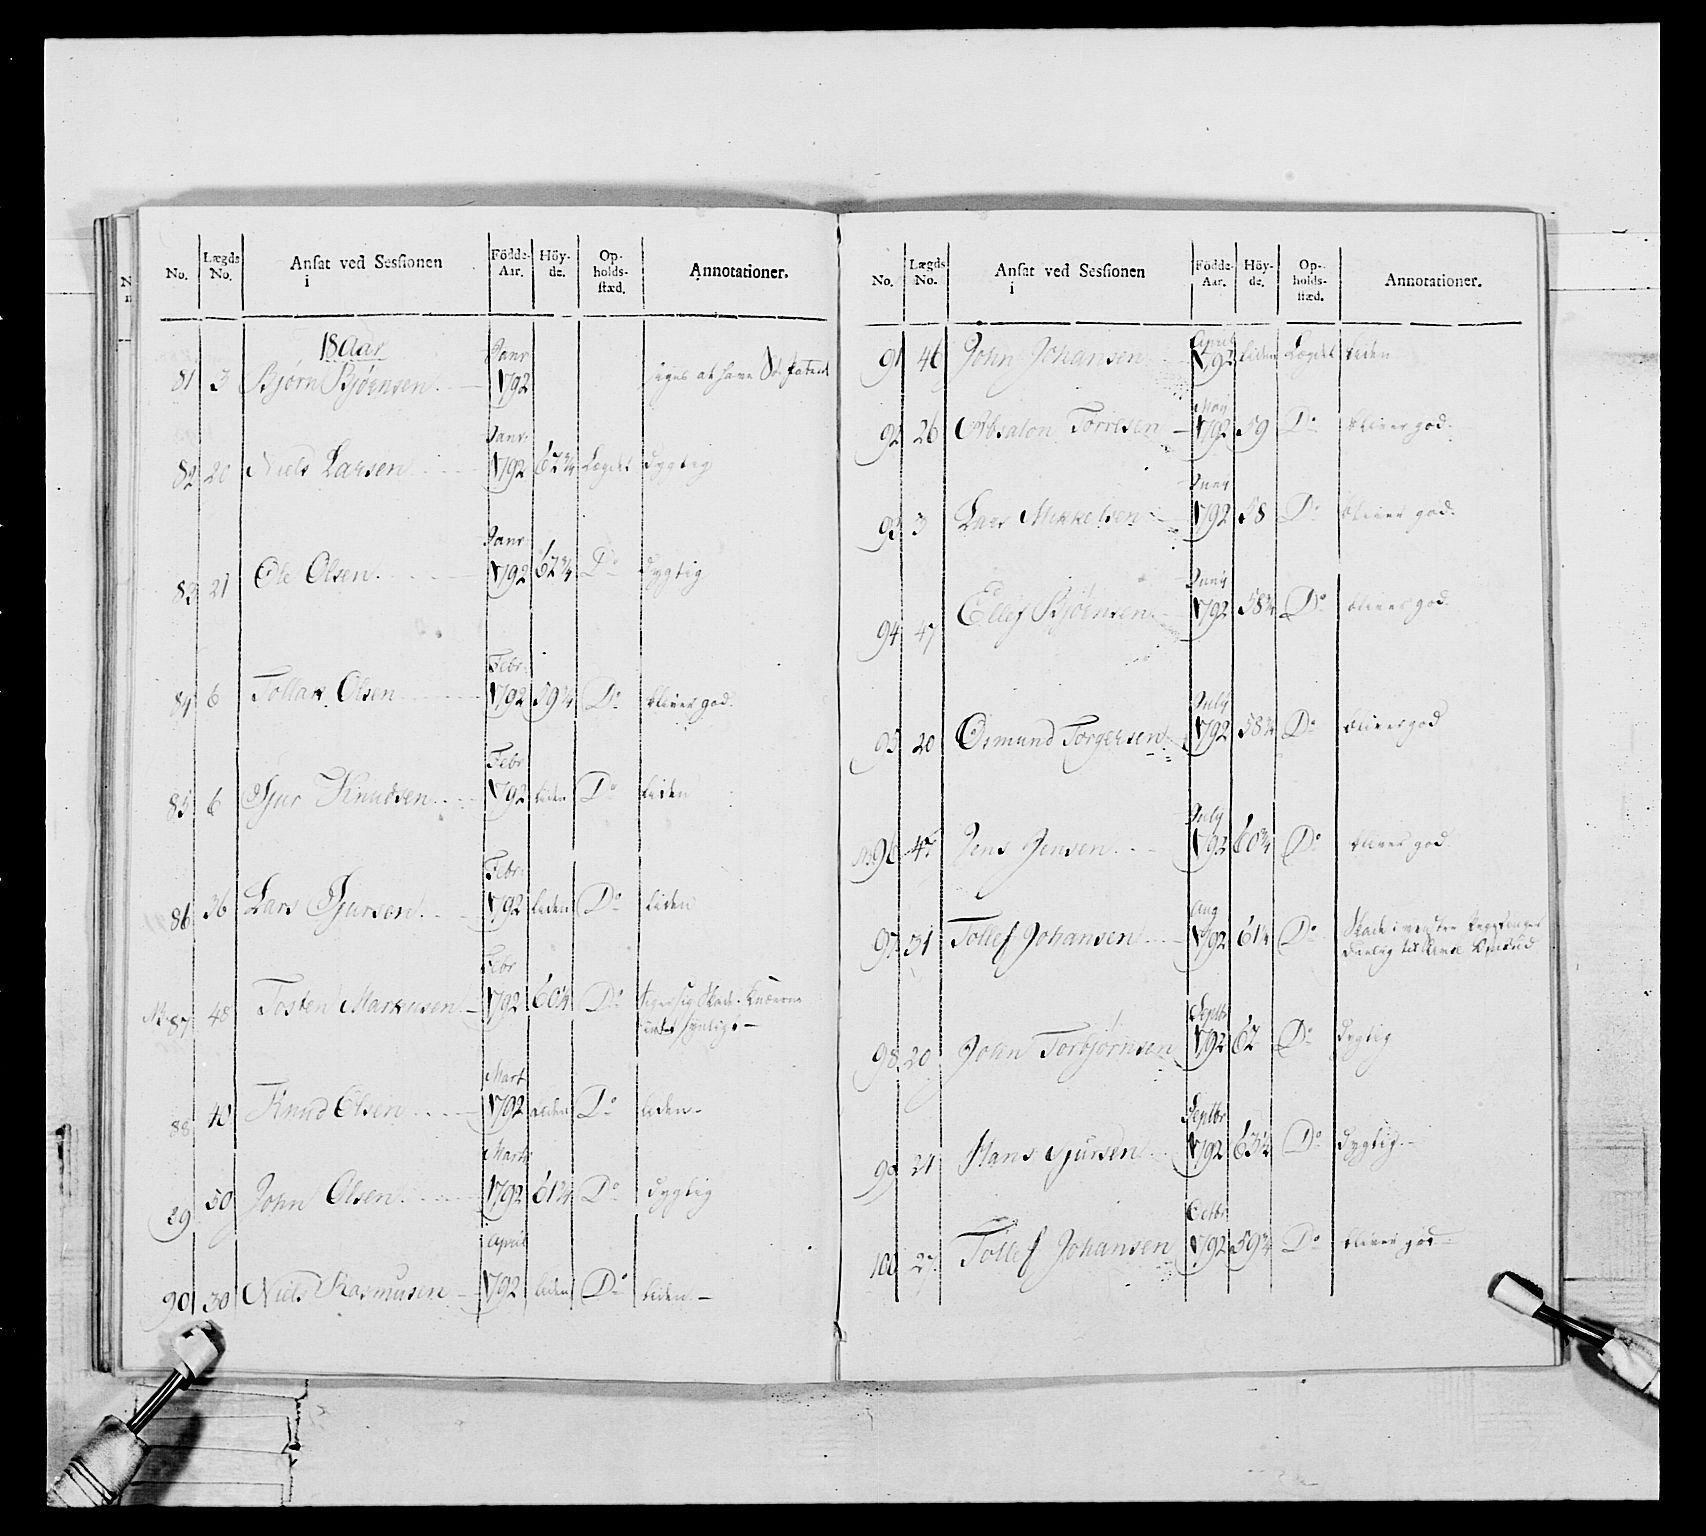 No. Lægds No. Ansat ved Sessionen i Födde-Aar. Höy-de. Op-holds-stæd. Annotationer.
18 Aar
81 3 Bjørn Bjørnsen Janr 1792 siges at have Søe Patent
82 20 Niels Larsen Janr 1792 62 3/4 Lægdet dygtig
83 21 Ole Olsen Janr 1792 62 3/4 Do dygtig
84 6 Tollak Olsen Febr. 1792 59 1/4 Do bliver god.
85 6 Sjur Knudsen Febr 1792 liden Do liden
86 36 Lars Sjursen Febr. 1792 liden Do liden
87 48 Tosten Markusen Febr 1792 60 1/4 Do Skade i Knæerne synligt —
88 40 Knud Olsen Mart 1792 liden Do liden —
89 50 John Olsen Marts 1792 61 1/4 Do dygtig
90 30 Niels Rasmusen April 1792 liden Do liden —
No. Lægds No. Ansat ved Sessionen i Födde-Aar. Höy-de. Op-holds-stæd. Annotationer.
91 46 John Johansen April 1792 liden Lægdet liden
92 26 Absalon Torresen May 1792 59 Do bliver god.
93 3 Lars Mikkelsen Juny 1792 58 Do bliver god.
94 47 Ellef Bjørnsen Juny 1792 58 3/4 Do bliver god.
95 20 Osmund Torgersen July 1792 58 1/4 Do bliver god
96 Jens Jensen July 1792 60 3/4 Do bliver god
97 31 Tollef Johansen Aug 1792 61 1/4 Do Skade i venstre
98 20 John Torbjørnsen Septbr 1792 62 Do dygtig
99 21 Hans Sjursen Septbr 1792 63 1/4 Do dygtig. —
100 27 Tollef Johansen Octbr 1792 59 3/4 Do bliver god —